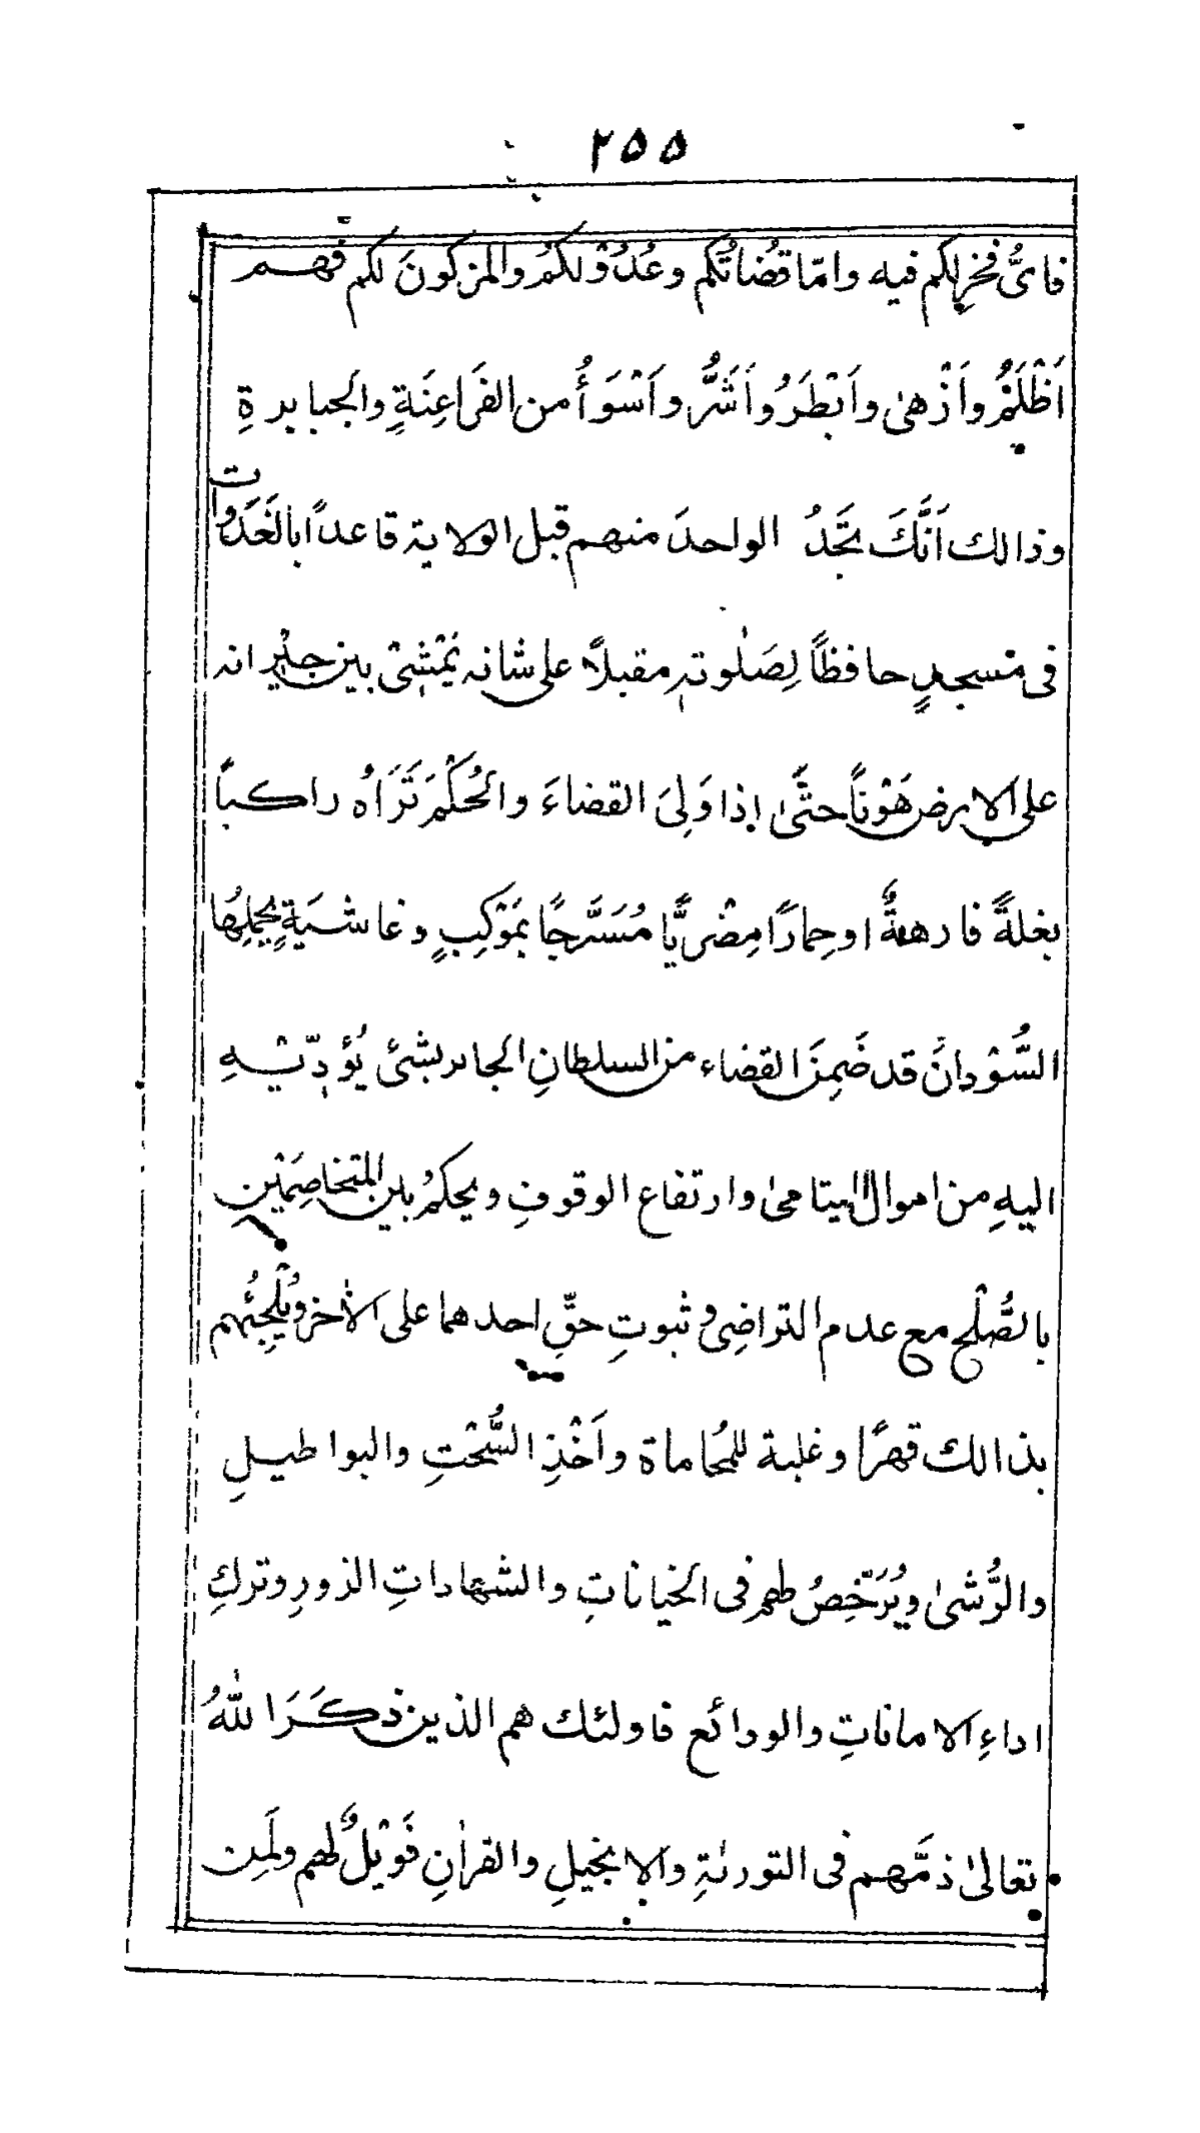 ۲۵۵
فاىُّ فخرٍ لكم فيه وامّا قُضاتُكم وعُدُوْلكمُ والمزكونَ لكم فهم
اَظْلَمُ واَزْهىٰ واَبْطَرُ واَشَرُّ واَسْوَأُ من الفَرَاعِنَةِ والجبابرةِ
وذالك اَنَّكَ تَجَدُ الواحدَ منهم قبل الولاية قاعداً بالغَدَوات
فى مسجدٍ حافظاً لِصَلٰوته مقبلاً على شانه يَمْشِىْ بين جيْرانه
على الارض هَوْناً حتَّىٰ اِذا وَلِىَ القضاءَ والحُكْمَ تَرَاهُ راكباً
بغلةً فارهةٌ اوحِمارًا مِصْرىًّا مُسَرَّجًا بمَوْكِبٍ وغاشيَةٍ يحمِلهَا
السُّوْدانَ قد ضَمِنَ القضاء من السلطانِ الجابر بشئ يُؤدّيْهِ
اليهِ من اموال اليتامىٰ وارتفاع الوقوفِ ويحكمُ بين المتخاصِمَيْن
بالصُّلْح مع عدم التراضِى وثبوتِ حقِّ احدهما على الاٰخر ويُلْجِئُهم
بذالك قهرًا وغلبة للمُحاماة واَخْذِ السُّحْتِ والبواطيلِ
والرُّشىٰ ويُرَخّصُ لهم فى الخياناتِ والشهاداتِ الزورِ وتركِ
اداءِ الاماناتِ والودائع فاولئك هم الذين ذكَرَ اللهُ
تعالىٰ ذمَّهم فى التورىٰةِ والانجيلِ والقراٰنِ فَوَيْلٌ لهم ولَمِن